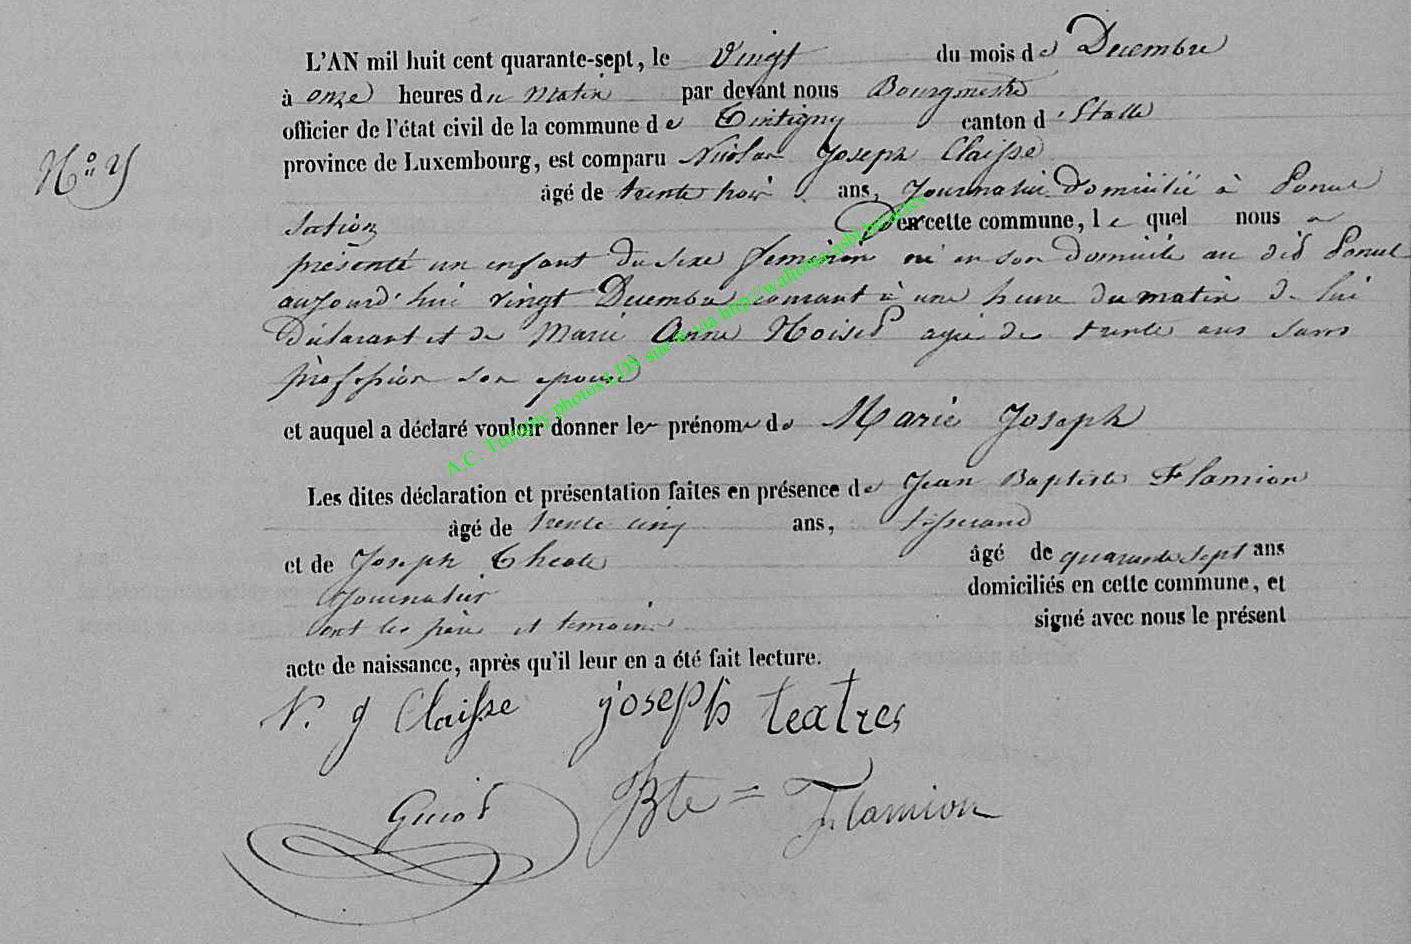 L'AN mil huit cent quarante-sept, le Vingt du mois de Decembre
à onze heures du matin par devant nous Bourgmestre
officier de l'état civil de la commune de Tintigny canton d'Etalle
province de Luxembourg, est comparu Nicolas Joseph Claisse
N°
âgé de trente trois ans, Journalier Domicilié à Poncel
Section Den cette commune, le quel nous a
présenté un enfant du sexe feminin né en son domicile au dit Poncel
aujourd'hui vingt Decembre courant à une heure du matin de lui
Déclarant et de Marie Anne Noised agée de trente ans sans
profession son epouse
et auquel a déclaré vouloir donner les prénoms de Marie Joseph
Les dites déclaration et présentation faites en présence de Jean Baptiste Flamion
âgé de trente cinq ans, tisserand
et de Joseph Theatre âgé de quarante sept ans
Journalier domiciliés en cette commune, et
ont les père et temoins signé avec nous le présent
acte de naissance, après qu'il leur en a été fait lecture.
N. J Claisse joseph teatres
Guiot JBte = Flamion
A.C. Tintigny photos LDS site & via http://wallonia.asbl.benaries